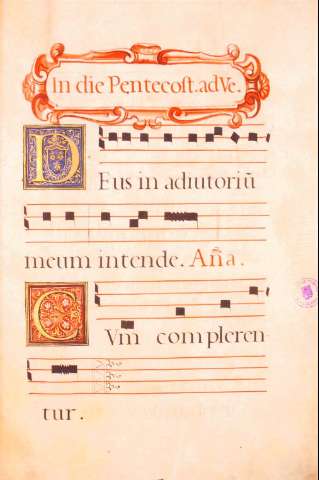 In die Pentecost. ad Ve.
Deus in adiutoriũ
meum intende. Añã.
Cum compleren-
tur.